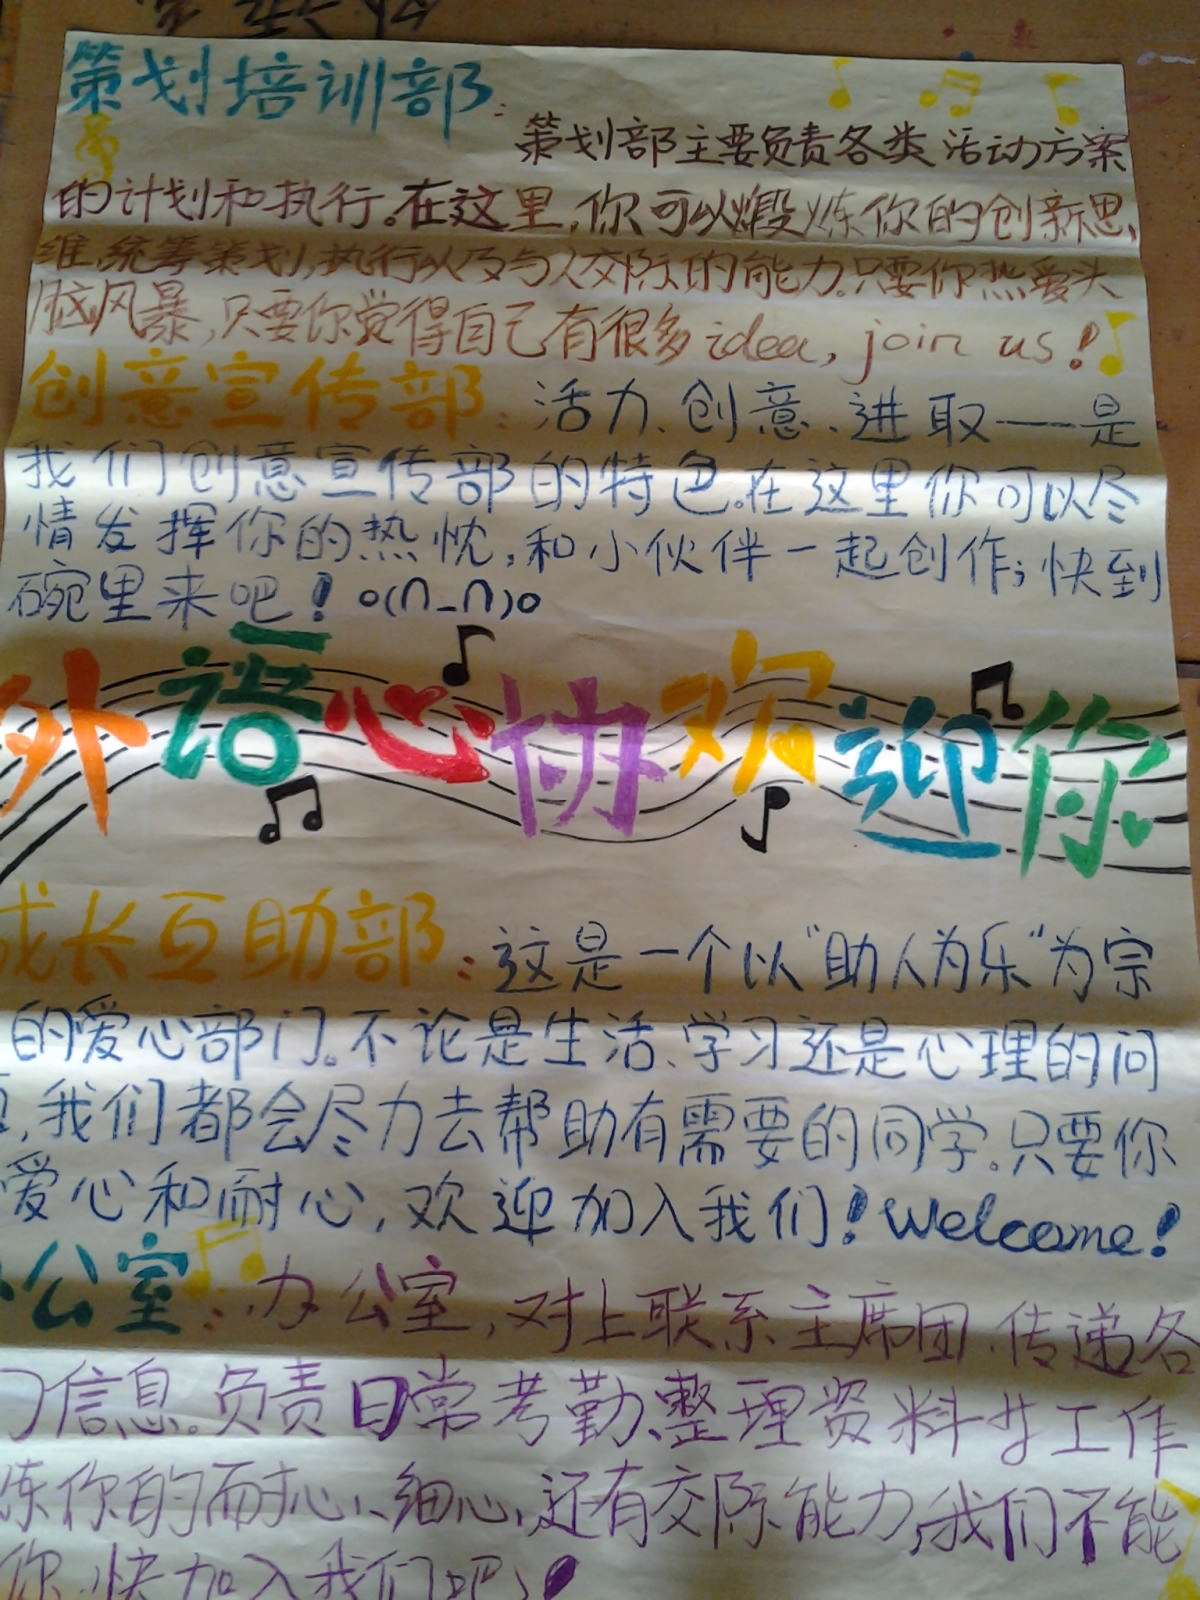 策划培训部:
策划部主要负责各类活动方案
的计划和执行。在这里,你可以煅炼你的创新思
维,统筹策划,执行以及与人交际的能力。只要你热爱头
脑风暴,只要你觉得自己有很多idea, join us!
创意宣传部: 活力、创意、进取——是
我们创意宣传部的特色。在这里你可以尽
情发挥你的热忱,和小伙伴一起创作;快到
碗里来吧!o(∩_∩)o
外语心协欢迎你
成长互助部: 这是一个以"助人为乐"为宗
的爱心部门。不论是生活、学习还是心理的问
,我们都会尽力去帮助有需要的同学。只要你
爱心和耐心,欢迎加入我们!Welcome!
公室: 办公室,对上联系主席团、传递各
门信息。负责日常考勤、整理资料等工作
炼你的耐心、细心,还有交际能力,我们不能
你,快加入我们吧!